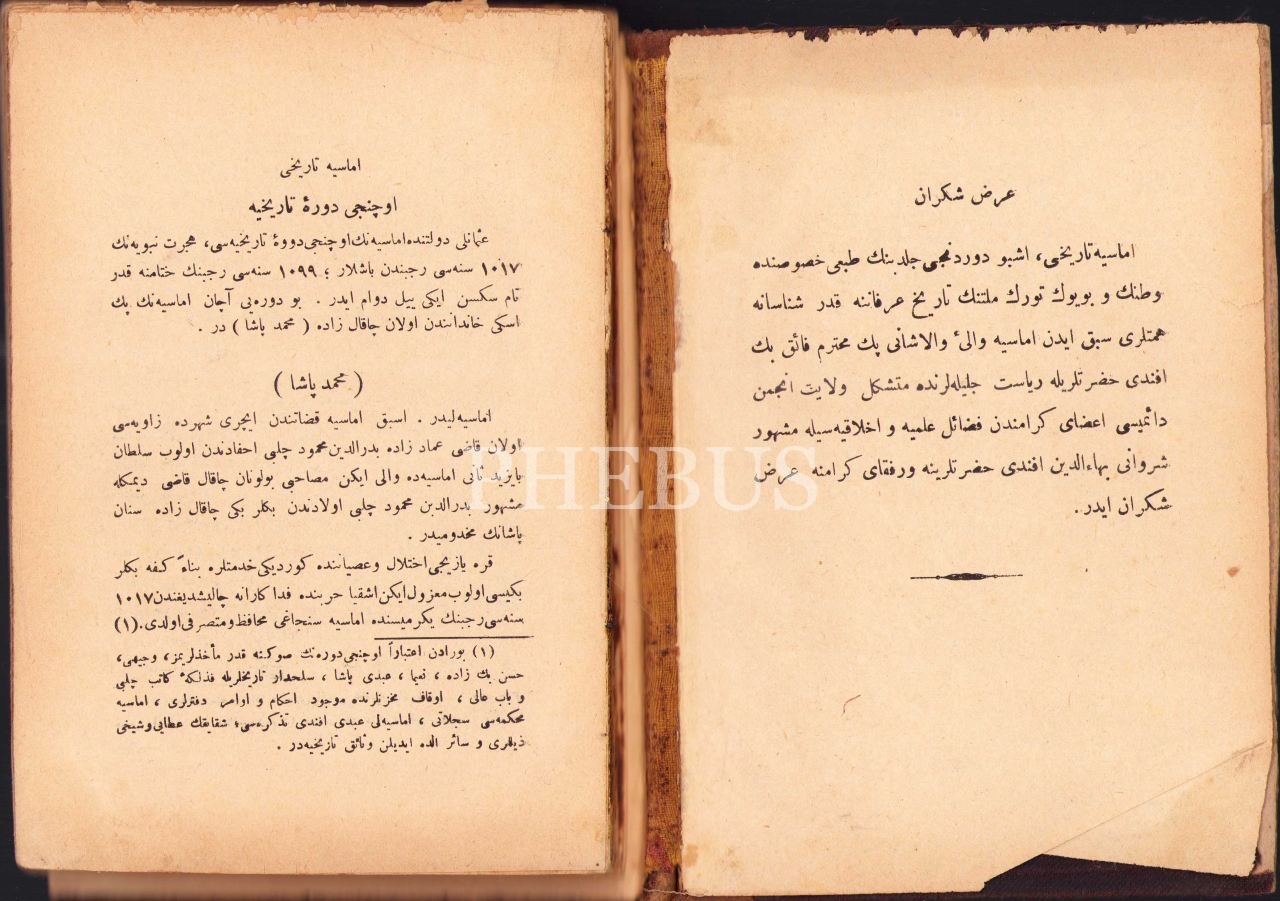 عرض شكران
اماسیه تاریخی، اشبو دوردنجی جلدینك طبعی خصوصنده
وطنك و بویوك تورك ملتنك تاریخ عرفاننه قدر شناسانه
همتلری سبق ایدن اماسیه والیٔ والاشانی پك محترم فائق بك
افندی حضرتلریله ریاست جلیله‌لرنده متشكل ولایت انجمن
دائمیسی اعضای كرامندن فضائل علمیه و اخلاقیه‌سیله مشهور
شروانی بهاءالدین افندی حضرتلرینه ورفقای كرامنه عرض
شكران ایدر.
اماسیه تاریخی
اوچنجی دورهٔ تاریخیه
عثمانلی دولتنده اماسیه‌نك اوچنجی دورهٔ تاریخیه‌سی، هجرت نبویه‌نك
١٠١٧ سنه‌سی رجبندن باشلار ؛ ١٠٩٩ سنه‌سی رجبنك ختامنه قدر
تام سكسن ایكی ییل دوام ایدر . بو دوره‌یی آچان اماسیه‌نك پك
اسكی خاندانندن اولان چاقال زاده ( محمد پاشا ) در .
( محمد پاشا )
اماسیه‌لیدر . اسبق اماسیه قضاتندن ایچری شهرده زاویه‌سی
اولان قاضی عماد زاده بدرالدین محمود چلبی احفادندن اولوب سلطان
بایزید ثانی اماسیه‌ده والی ایكن مصاحبی بولونان چاقال قاضی دیمكله
مشهور بدرالدین محمود چلبی اولادندن بكلر بكی چاقال زاده سنان
پاشانك مخدومیدر .
قره یازیجی اختلال وعصیاننده كوردیكی خدمتلره بناءً كفه بكلر
بكیسی اولوب معزول ایكن اشقیا حربنده فداكارانه چالیشدیغندن ١٠١٧
سنه‌سی رجبنك یكرمیسنده اماسیه سنجاغی محافظ ومتصرفی اولدی. (١)
(١) بورادن اعتباراً اوچنجی دوره‌نك صوكنه قدر مأخذلریمز، وجیهی،
حسن بك زاده ، نعیما ، عبدی پاشا ، سلحدار تاریخلریله فذلكهٔ كاتب چلبی
و باب عالی ، اوقاف مخزنلرنده موجود احكام و اوامر دفترلری ، اماسیه
محكمه‌سی سجلاتی ، اماسیه‌لی عبدی افندی تذكره‌سی؛ شقایقك عطایی وشیخی
ذیللری و سائر الده ایدیلن وثائق تاریخیه‌در .
PHEBUS